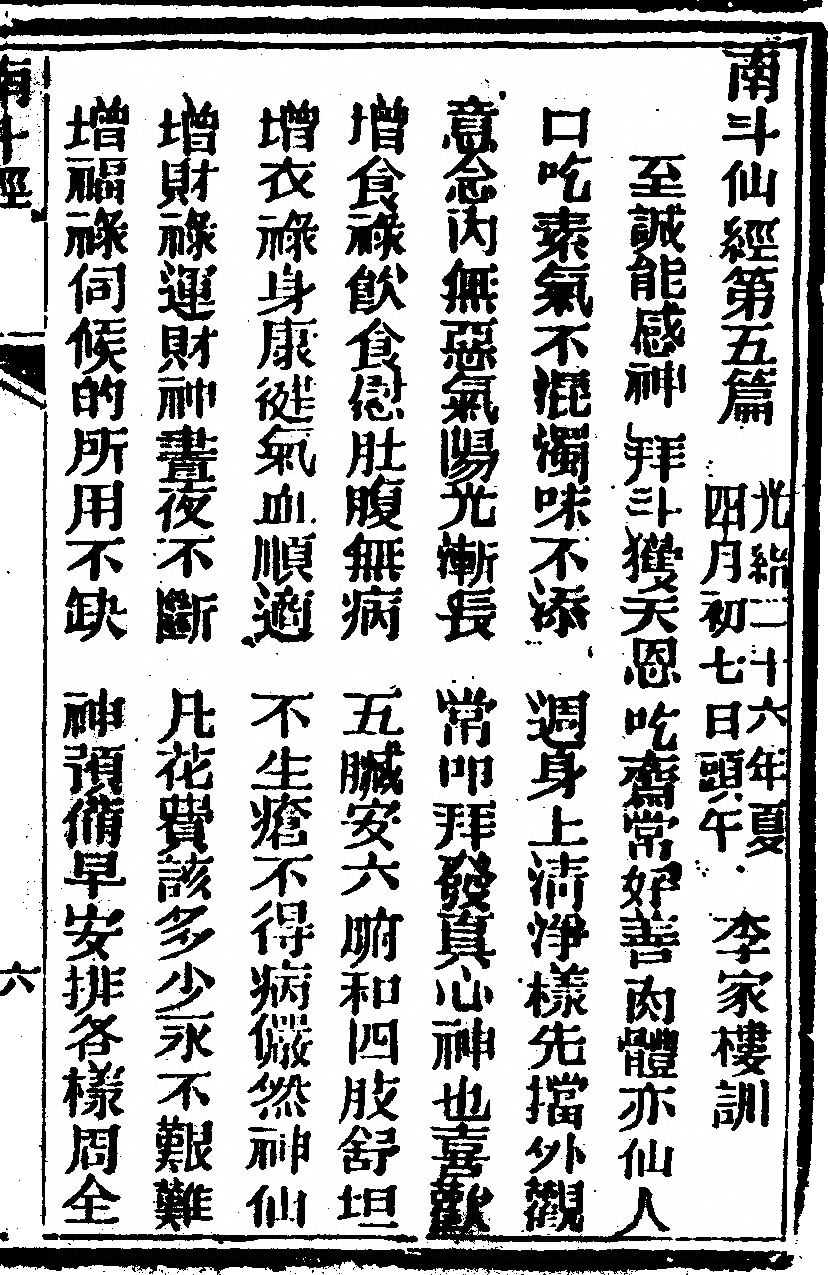 南斗仙經第五篇 光緒二十六年夏四月初七日頭午 李家樓訓
至誠能感神 拜斗獲天恩 吃齋常好善 肉體亦仙人
口吃素氣不混濁味不添 週身上清淨樣先擋外觀
意念內無惡氣陽光漸長 常叩拜發真心神也喜歡
增食祿飲食慰肚腹無病 五臟安六腑和四肢舒坦
增衣祿身康健氣血順適 不生瘡不得病儼然神仙
增財祿運財神晝夜不斷 凡花費該多少永不艱難
增福祿伺候的所用不缺 神預備早安排各樣周全
南斗經
六